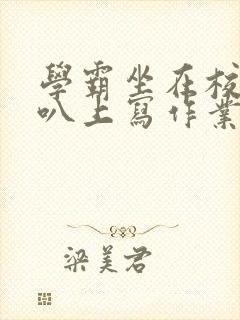 學霸坐在校
叭上寫作業
梁美君